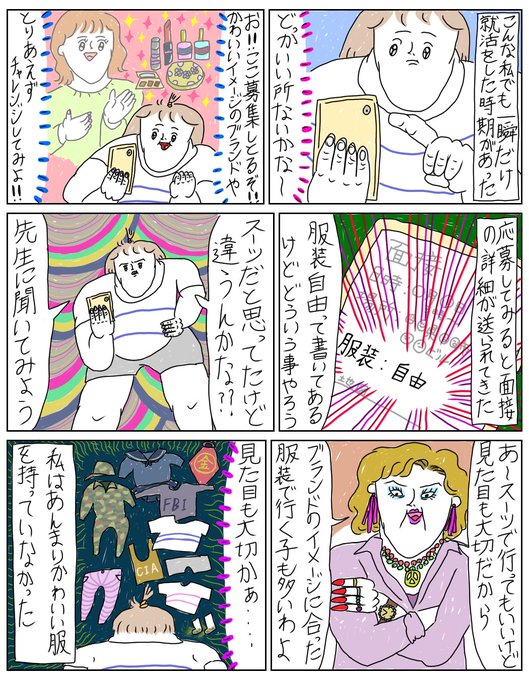 こんな私でも一瞬だけ
就活をした時期があった
どがいい所ないかな〜
お!!ここ募集しとるぞ!!
かわいいイメージのブランドや
とりあえず
チャレンジしてみよ!!
応募してみると面接
の詳細が送られてきた
面接
服装:自由
服装自由って書いてある
けどどういう事やろう
スーツだと思ってたけど
違うんかな??
先生に聞いてみよう
あ〜スーツで行ってもいいけど
見た目も大切だから
ブランドのイメージに合た
服装で行く子も多いわよ
見た目も大切かぁ・・・
金
FBI
CIA
私はあんまりかわいい服
を持っていなかった